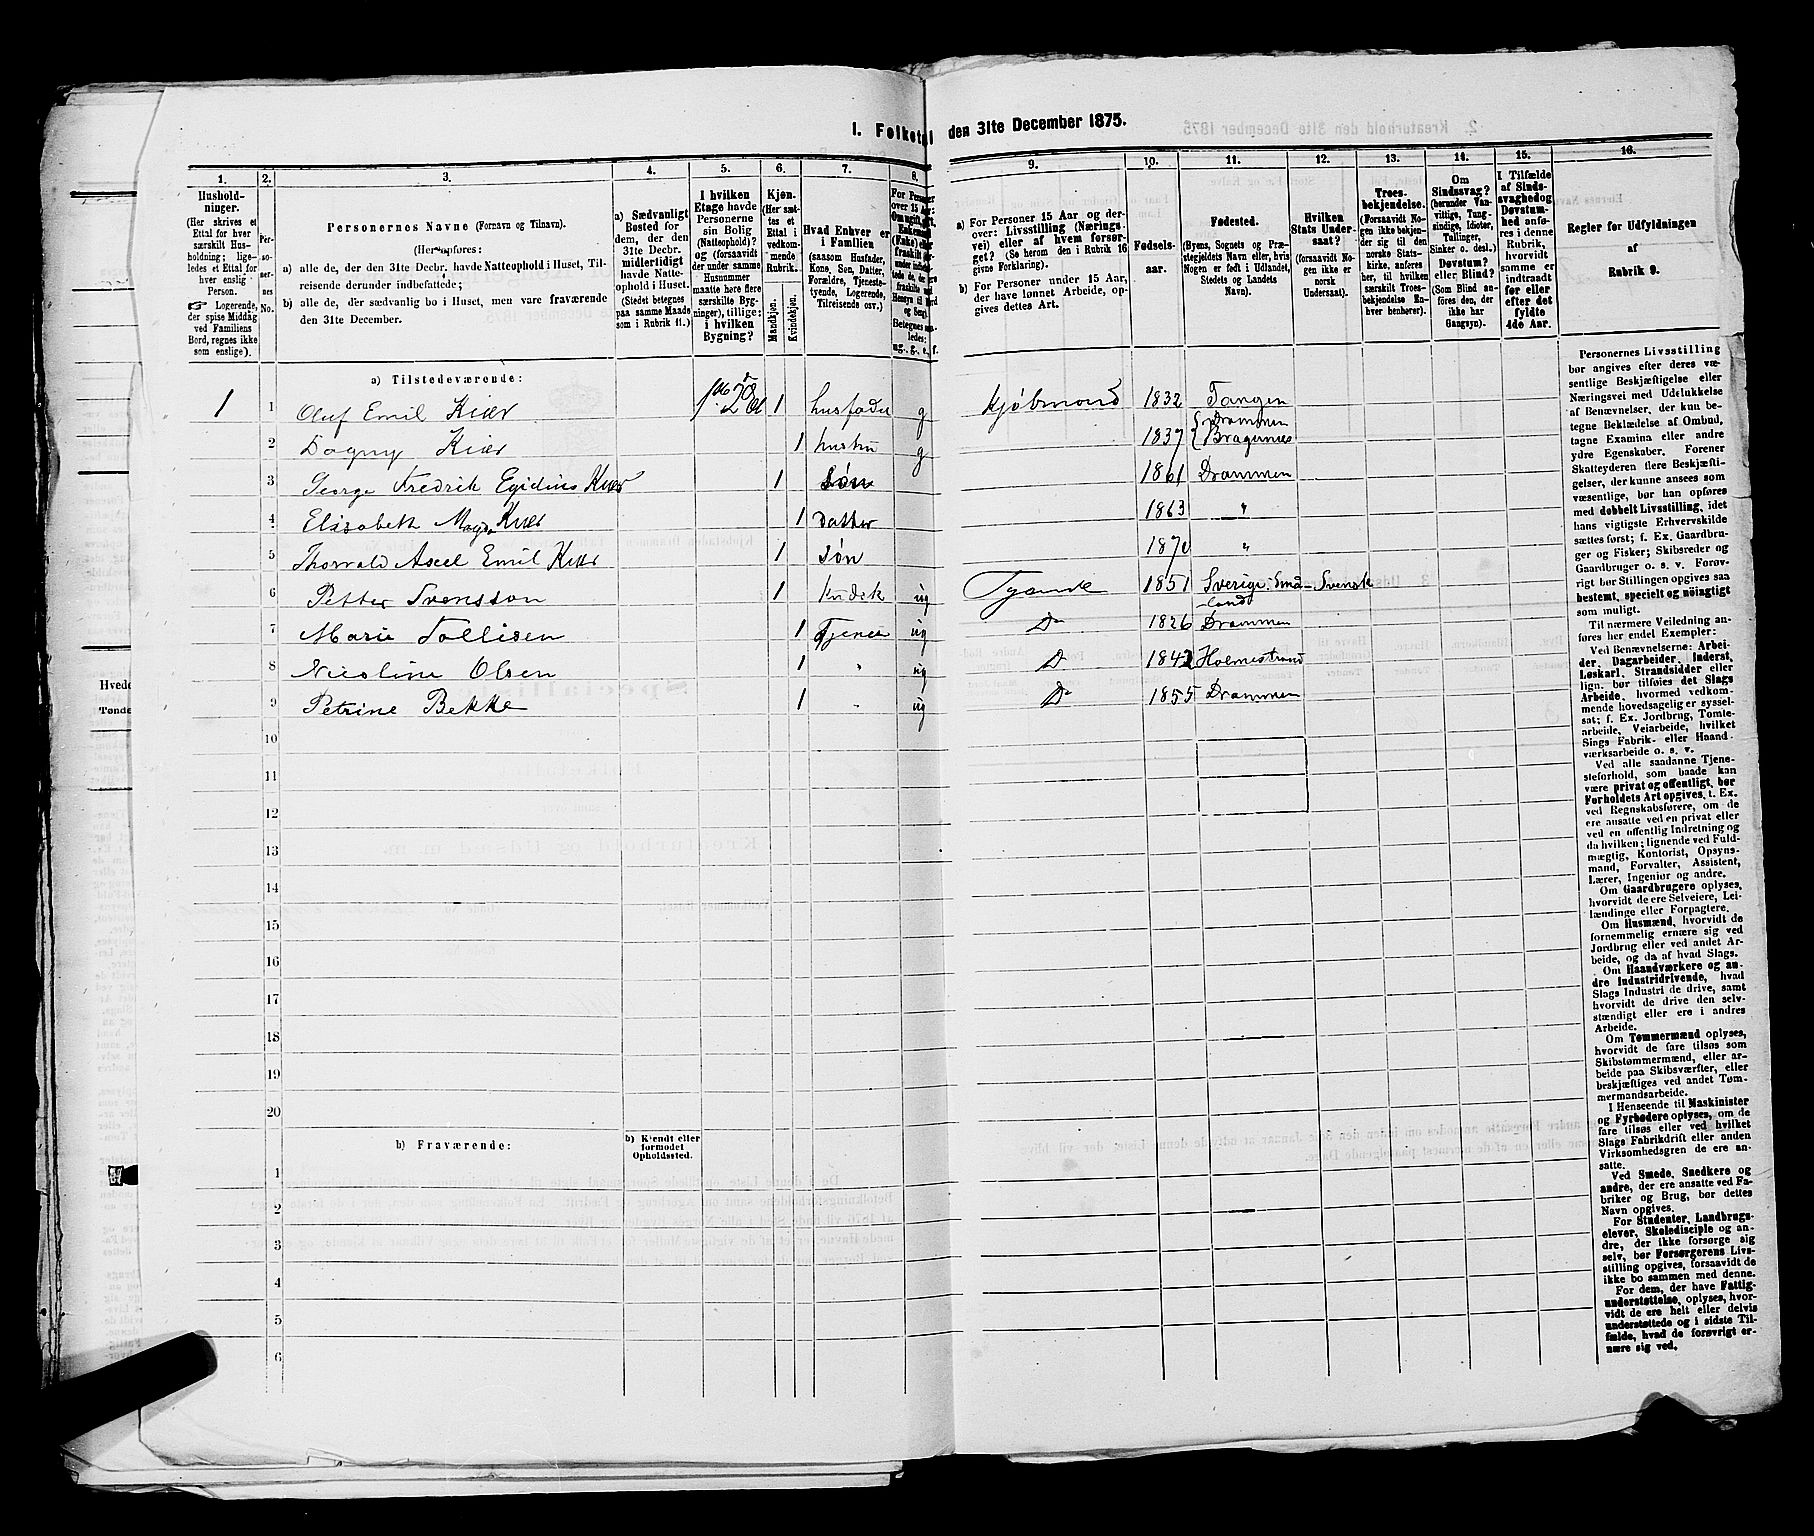 1. Folketal den 31te December 1875.
1. 2. 3. 4. 5. 6. 7. 8. 9. 10. 11. 12. 13. 14. 15. 16.
Hushold-
ninger.
(Her skrives et
Ettal for hver
særskilt Hus-
holdning; lige-
ledes et Ettal for
hver enslig
Person.
☞ Logerende,
der spise Middag
ved Familiens
Bord, regnes ikke
som enslige).
Per-
so-
ner-
nes
No.
Personernes Navne (Fornavn og Tilnavn).
(Her opføres:
a) alle de, der den 31te Decbr. havde Natteophold i Huset, Til-
reisende derunder indbefattede;
b) alle de, der sædvanlig bo i Huset, men vare fraværende
den 31te December.
a) Sædvanligt
Bosted for
dem, der den
31te Decbr.
midlertidigt
havde Natte-
ophold i Huset.
(Stedet betegnes
paa samme Maade
som i Rubrik 11.)
I hvilken
Etage havde
Personerne
sin Bolig
(Natteophold?)
og (forsaavidt
der under samme
Husnummer
maatte høre flere
særskilte Byg-
ninger), tillige:
i hvilken
Bygning?
Kjøn.
(Her sæt-
tes et
Ettal i
vedkom-
mende
Rubrik.)
Mandkjøn.
Kvindekjøn.
Hvad Enhver er
i Familien
(saasom Husfader,
Kone, Søn, Datter,
Forældre, Tjeneste-
tyende, Logerende,
Tilreisende osv.)
For Personer
over 15 Aar:
Om ugift, gift,
Enkemand
(Enke) eller
fraskilt
Betegnes saa-
ledes:
ug., g., e., f.
a) For Personer 15 Aar og der-
over: Livsstilling (Nærings-
vei) eller af hvem forsør-
get? (Se herom den i Rubrik 16
givne Forklaring).
b) For Personer under 15 Aar,
der have lønnet Arbeide, op-
gives dettes Art.
Fødsels-
aar.
Fødested.
(Byens, Sognets og Præ-
stegjeldets Navn eller, hvis
Nogen er født i Udlandet,
Stedets og Landets
Navn).
Hvilken
Stats Under-
saat?
(forsaavidt
Nogen ikke er
norsk
Undersaat).
Troes-
bekjendelse.
(Forsaavidt No-
gen ikke bekjen-
der sig til den
norske Stats-
kirke, anføres
her, til hvilken
særskilt Troes-
bekjendelse En-
hver benhører).
Om
Sindssvag?
(herunder Van-
vittige, Tung-
sindige, Idioter,
Tullinger,
Sinker o. desl.)
Døvstum?
eller Blind?
(Som Blind an-
føres den, der
ikke har
Gangsyn).
I Tilfælde
af Sinds-
svaghed og
Døvstum-
hed anfø-
res i denne
Rubrik,
hvorvidt
samme er
indtraadt
før eller
efter det
fyldte
4de Aar.
Regler for Udfyldningen
af
Rubrik 9.
a) Tilstedeværende:
1 1 Oluf Emil Kiær 1 husfader g Kjøbmand 1832 Tangen
2 Dagny Kiær 1 hustru g 1837 Drammen Bragernes
3 George Fredrik Egidius Kiær 1 Søn 1861 Drammen
4 Elisabeth Maya Kiær 1 Datter 1863 "
5 Thorvald Axel Emil Kiær 1 Søn 1870 "
6 Petter Svensson 1 Kudsk ug Tyende 1851 Sverige: Små-land Svensk
7 Marie Tollisen 1 Tjener ug Do 1826 Drammen
8 Nicoline Olsen 1 " ug D 1842 Holmestrand
9 Petrine Bekke 1 " ug Do 1855 Drammen
10
11
12
13
14
15
16
17
18
19
20
b) Fraværende:
b) Kjendt eller
formodet
Opholdssted.
1
2
3
4
5
6
Personernes Livsstilling
bør angives efter deres væ-
sentlige Beskjæftigelse eller
Næringsvei med Udelukkelse
af Benævnelser, der kun be-
tegne Beklædelse af Ombud,
tagne Examina eller andre
ydre Egenskaber. Forener
Skatteyderen flere Beskjæfti-
gelser, der kunne ansees som
væsentlige, bør han opføres
med dobbelt Livsstilling, idet
hans vigtigste Erhvervskilde
sættes først; f. Ex. Gaardbru-
ger og Fisker; Skibsreder og
Gaardbruger o. s. v. Forøv-
rigt bør Stillingen opgives saa
bestemt, specielt og nøiagtigt
som muligt.
Til nærmere Veiledning an-
føres her endel Exempler:
Ved Benævnelserne: Arbei-
der, Dagarbeider, Inderst,
Løskarl, Strandsidder eller
lign. bør tilføies det Slags
Arbeide, hvormed vedkom-
mende hovedsagelig er syssel-
sat; f. Ex. Jordbrug, Tomte-
arbeide, Veiarbeide, hvilket
Slags Fabrik- eller Haand-
værksarbeide o. s. v.
Ved alle saadanne Tjene-
steforhold, som baade kan
være privat og offentligt, bør
Forholdets Art opgives, t. Ex.
ved Regnskabsførere, om de
ere ansatte ved en privat eller
ved en offentlig Indretning og
da hvilken; lignende ved Fuld-
mægtig, Kontorist, Opsyns-
mand, Forvalter, Assistent,
Lærer, Ingeniør og andre.
Om Gaardbrugere oplyses,
hvorvidt de ere Selveiere, Lei-
lændinge eller Forpagtere.
Om Husmænd, hvorvidt de
fornemmelig ernære sig ved
Jordbrug eller ved andet Ar-
beide, og da af hvad Slags.
Om Haandværkere og an-
dre Industridrivende, hvad
Slags Industri de drive, samt
hvorvidt de drive den selv-
stændigt eller ere i andres
Arbeide.
Om Tømmermænd oplyses,
hvorvidt de fare tilsøs som
Skibstømmermænd, eller ar-
beide paa Skibsværfter, eller
beskjæftiges ved andet Tøm-
mermandsarbeide.
I Henseende til Maskinister
og Fyrbødere oplyses, om de
fare tilsøs eller ved hvilket
Slags Fabrikdrift eller anden
Virksomhedsgren de ere an-
satte.
Ved Smede, Snedkere og
andre, der ere ansatte ved Fa-
briker og Brug, bør dettes
Navn opgives.
For Studenter, Landbrugs-
elever, Skoledisciple og an-
dre, der ikke forsørge sig
selv, bør Forsørgerens Livs-
stilling opgives, forsaavidt de
ikke bo sammen med denne.
For dem, der have Fattig-
understøttelse, oplyses, hvor-
vidt de ere helt eller delvis
understøttede og i sidste Til-
fælde, hvad de forøvrigt er-
nære sig ved.
Hvede
Tønde